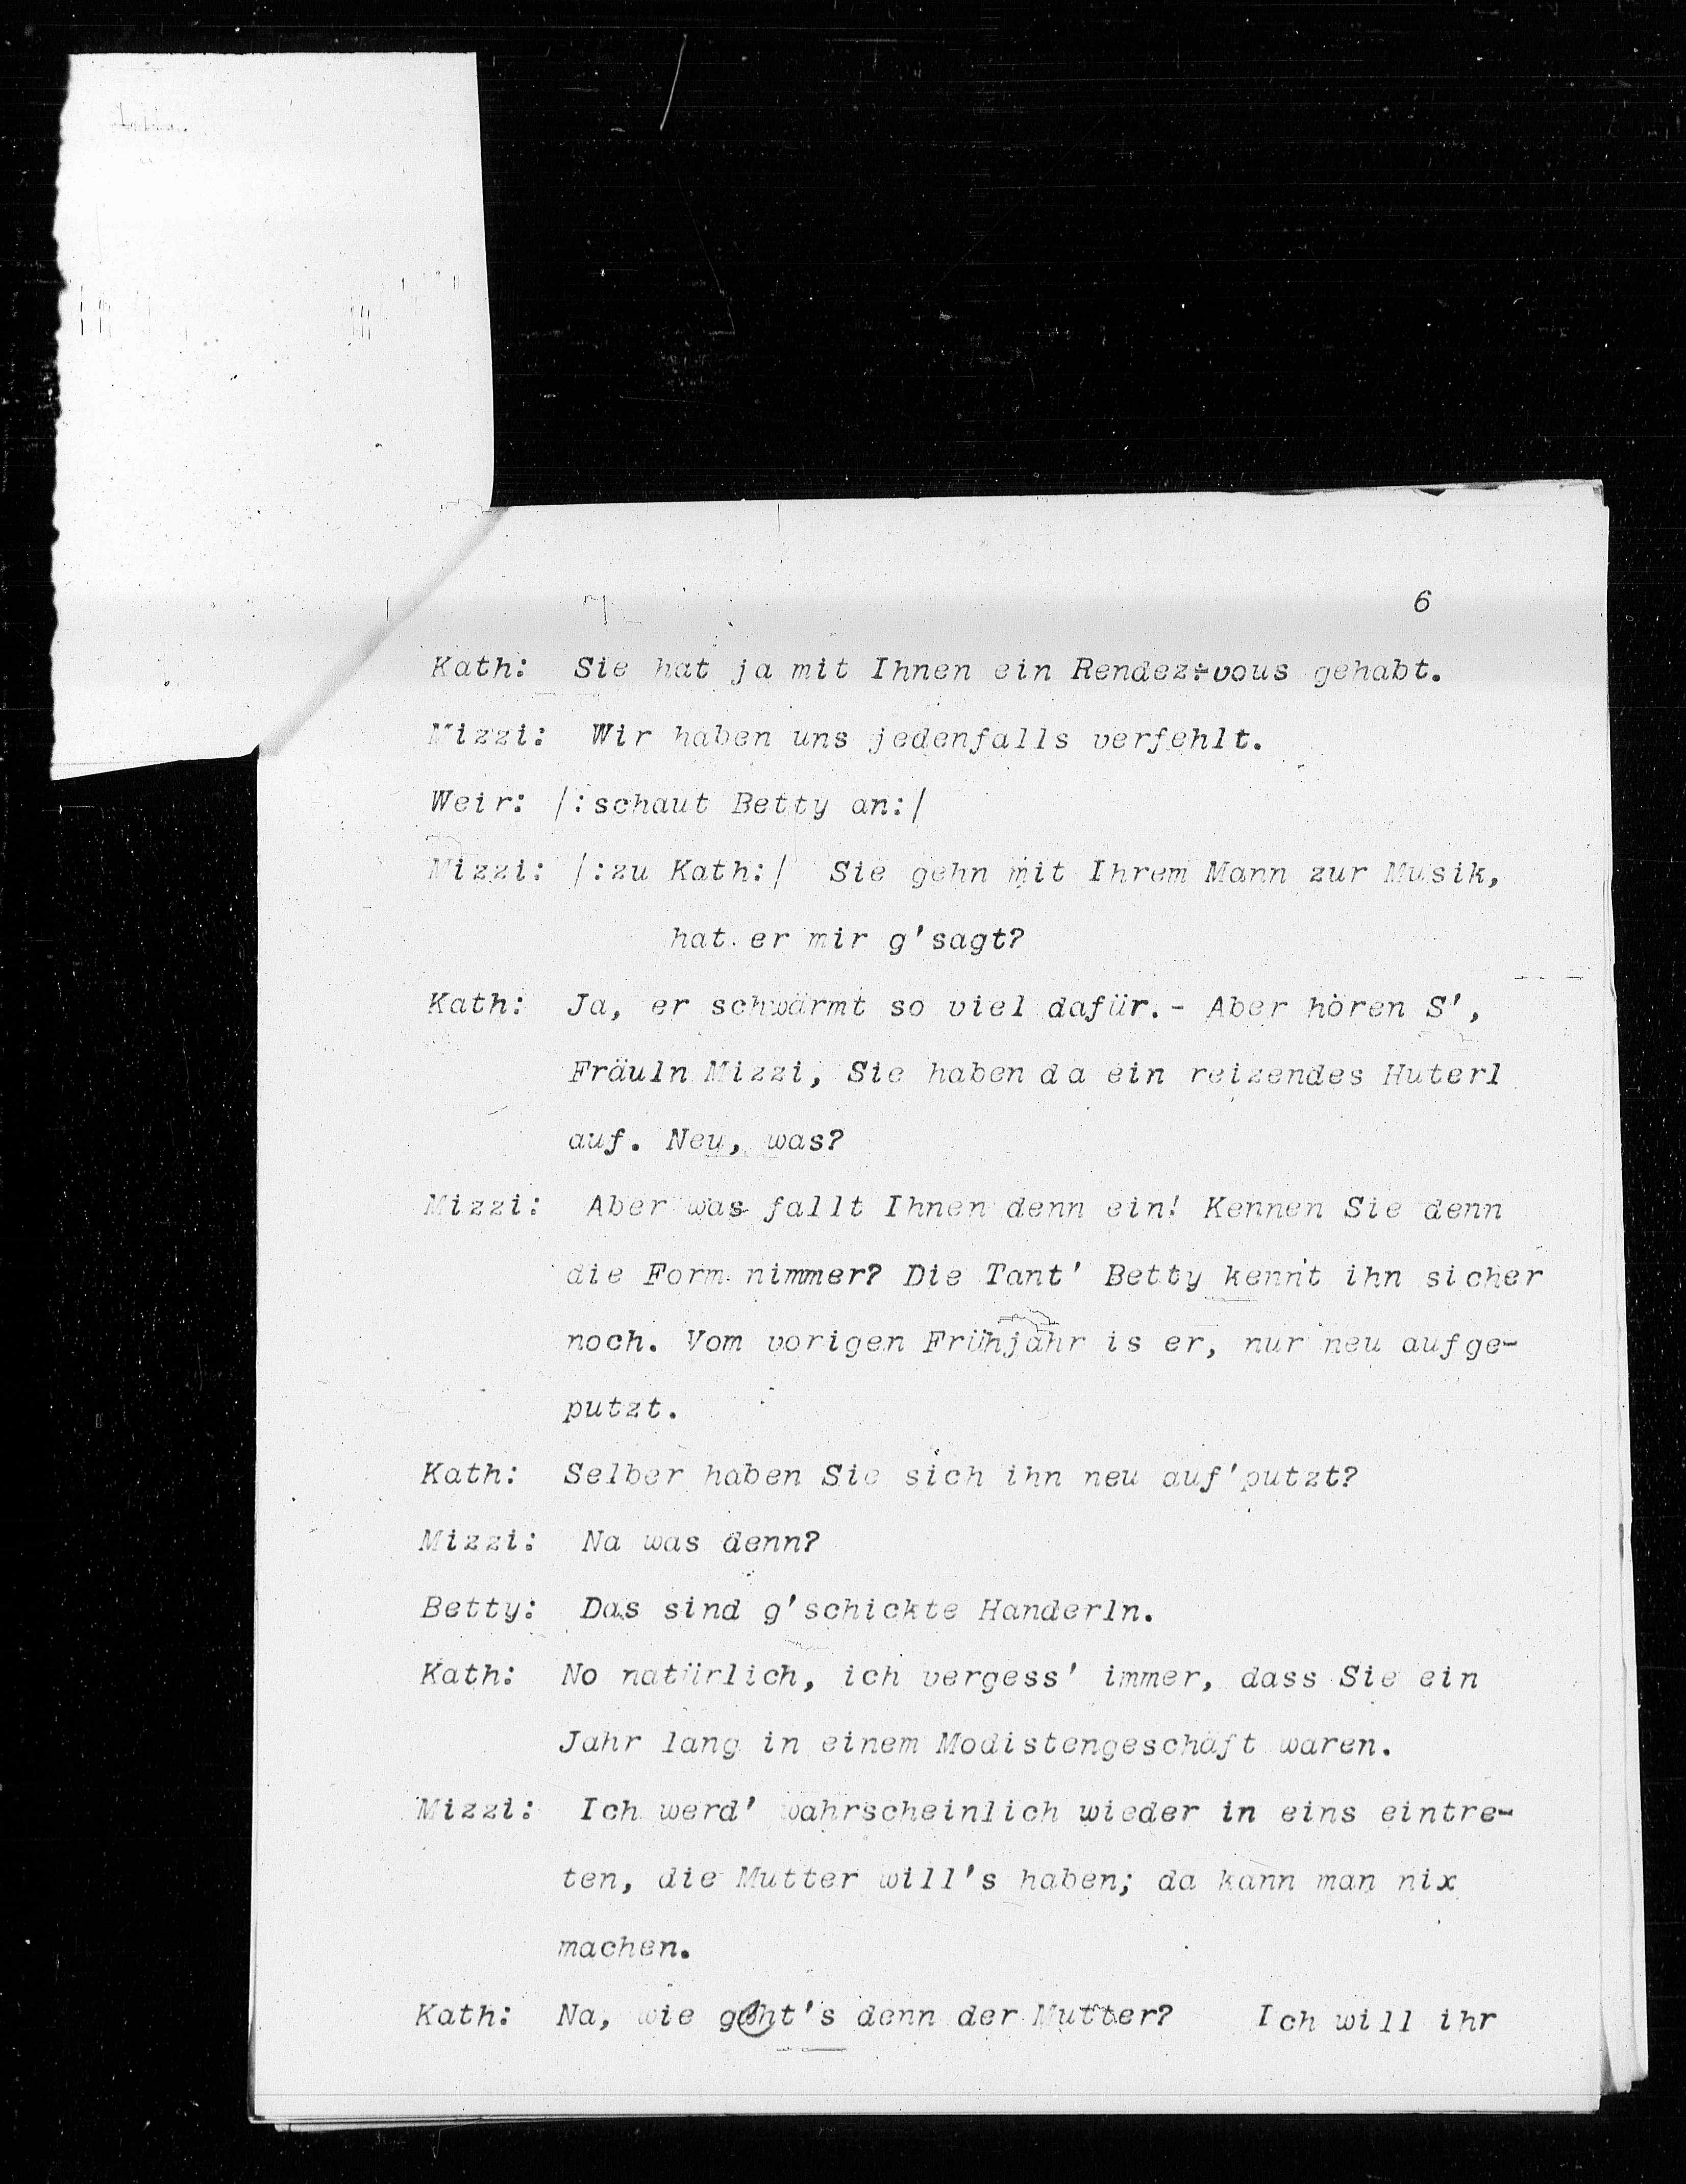 6
Kath: Sie hat ja mit Ihnen ein Rendez-vous gehabt.
Mizzi: Wir haben uns jedenfalls verfehlt.
Weir: /:schaut Betty an:/
Mizzi: /:zu Kath:/ Sie gehn mit Ihrem Mann zur Musik,
hat er mir g'sagt?
Kath: Ja, er schwärmt so viel dafür.- Aber hören S',
Fräuln Mizzi, Sie haben da ein reizendes Huterl
auf. Neu, was?
Mizzi: Aber was fallt Ihnen denn ein! Kennen Sie denn
die Form nimmer? Die Tant' Betty kennt ihn sicher
noch. Vom vorigen Frühjahr is er, nur neu aufge-
putzt.
Kath: Selber haben Sie sich ihn neu auf'putzt?
Mizzi: Na was denn?
Betty: Das sind g'schickte Handerln.
Kath: No natürlich, ich vergess' immer, dass Sie ein
Jahr lang in einem Modistengeschäft waren.
Mizzi: Ich werd' wahrscheinlich wieder in eins eintre-
ten, die Mutter will's haben; da kann man nix
machen.
Kath: Na, wie geht's denn der Mutter? Ich will ihr